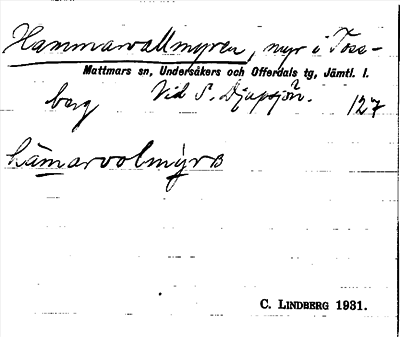 Hammarvallmyren, myr i Toss-
Mattmars sn, Undersåkers och Offerdals tg, Jämtl. l.
berg Vid S. Djupsjön. 127
håmarvolmýrɞ
C. LINDBERG 1931.